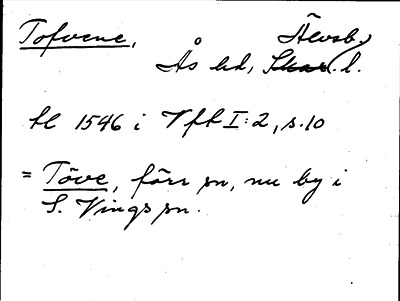 Tofvene, Älvsb.
Ås hd, Skar. l.
tl 1546 i Vft I:2, s.10
= Töve, förr sn, nu by i
S. Vings sn.